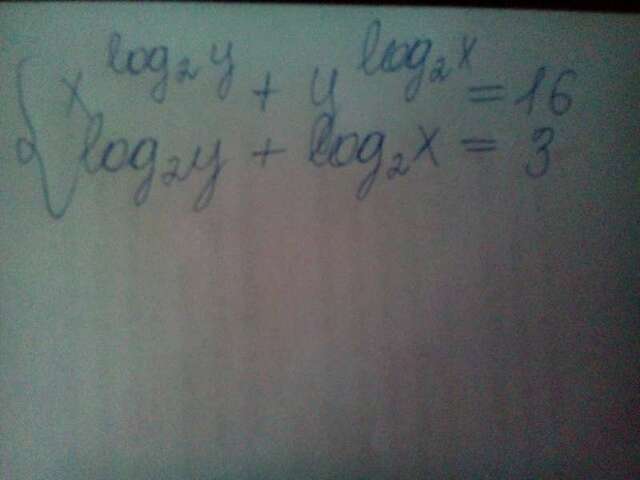 { x^{log₂y} + y^{log₂x} = 16
log₂y + log₂x = 3